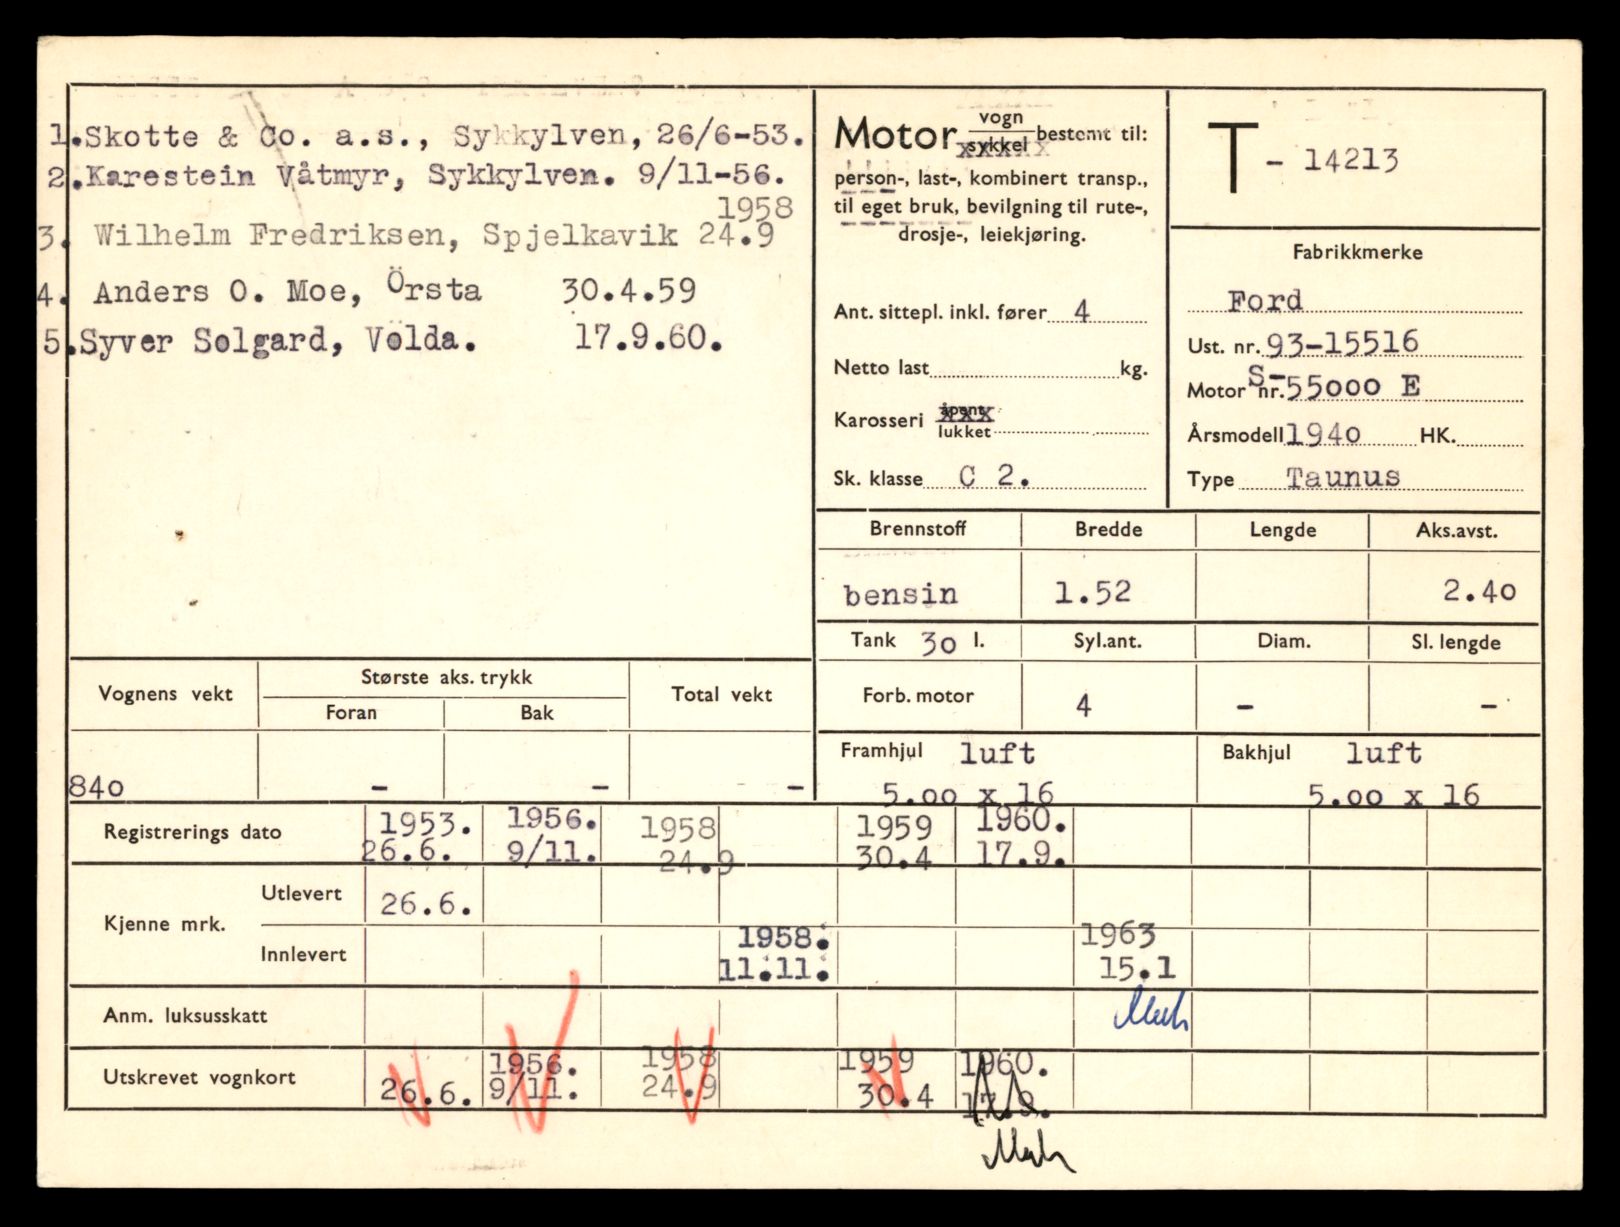 1.Skotte & Co. a.s., Sykkylven, 26/6-53.
2.Karestein Våtmyr, Sykkylven. 9/11-56.
1958
3. Wilhelm Fredriksen, Spjelkavik 24.9
4. Anders O. Moe, Örsta 30.4.59
5.Syver Solgard, Volda. 17.9.60.
Motor vogn sykkel bestemt til:
person-, last-, kombinert transp.,
til eget bruk, bevilgning til rute-,
drosje-, leiekjøring.
Ant. sittepl. inkl. fører 4
Netto last kg.
Karosseri åpent lukket
Sk. klasse C 2.
T - 14213
Fabrikkmerke
Ford
Ust. nr. 93-15516
Motor nr. S-55000 E
Årsmodell 1940 HK.
Type Taunus
Brennstoff Bredde Lengde Aks.avst.
bensin 1.52 2.40
Tank 30 l. Syl.ant. Diam. Sl. lengde
Forb. motor 4 - -
Framhjul luft Bakhjul luft
5.00 x 16 5.00 x 16
Vognens vekt Største aks. trykk Total vekt
Foran Bak
840 - - -
Registrerings dato 1953. 1956. 1958 1959 1960.
26.6. 9/11. 24.9 30.4 17.9.
Kjenne mrk.
Utlevert 26.6.
Innlevert 1958. 1963
11.11. 15.1
Anm. luksusskatt
Utskrevet vognkort 1956. 1958 1959 1960.
26.6. 9/11. 24.9 30.4 17.9.